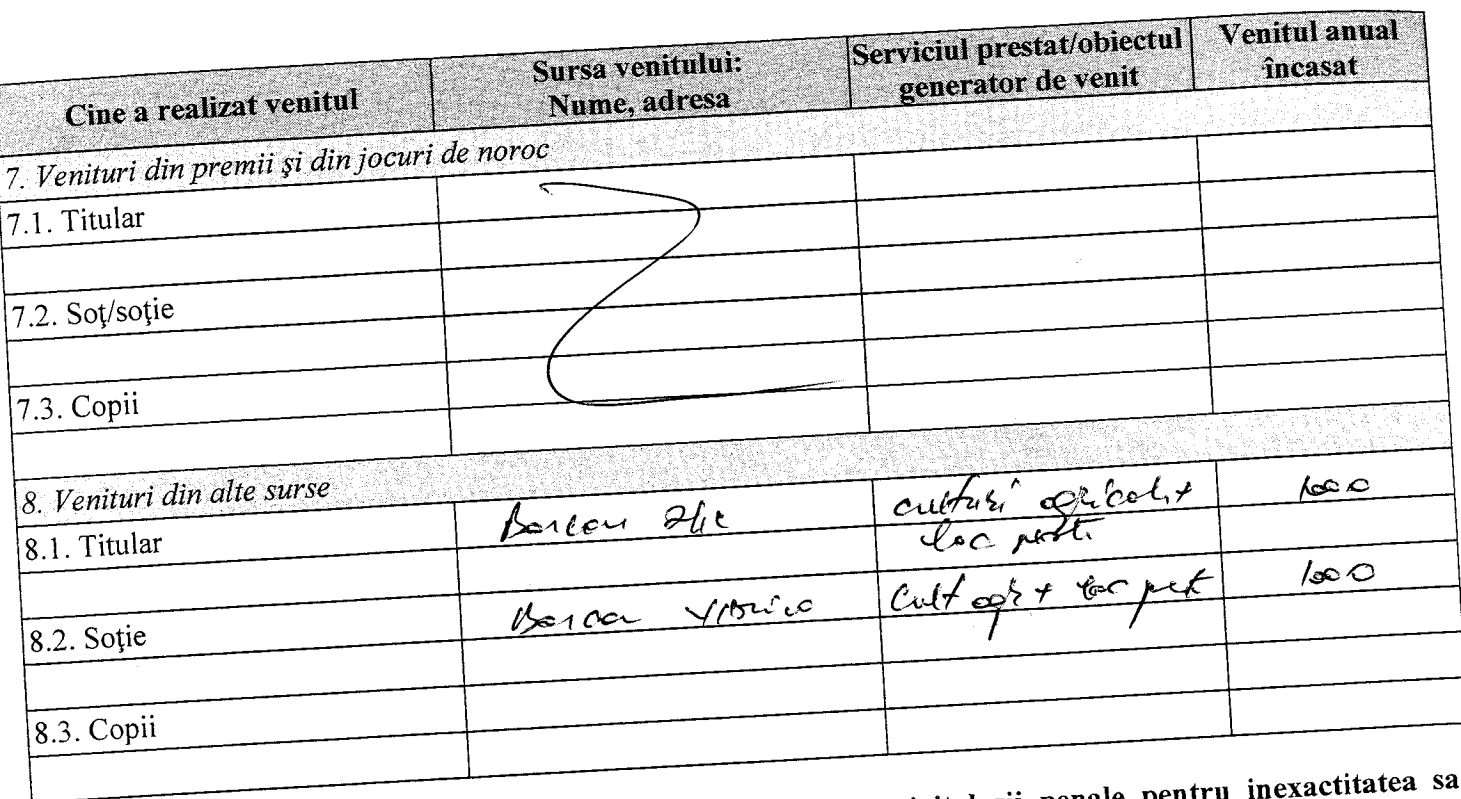 Cine a realizat venitul
Sursa venitului:
Nume, adresa
Serviciul prestat/obiectul
generator de venit
Venitul anual
încasat
7. Venituri din premii şi din jocuri de noroc
7.1. Titular
7.2. Soţ/soţie
7.3. Copii
8. Venituri din alte surse
8.1. Titular
culturi agricole +
loc
1000
8.2. Soţie
Cult agr + loc
1000
8.3. Copii
penale pentru inexactitatea sa